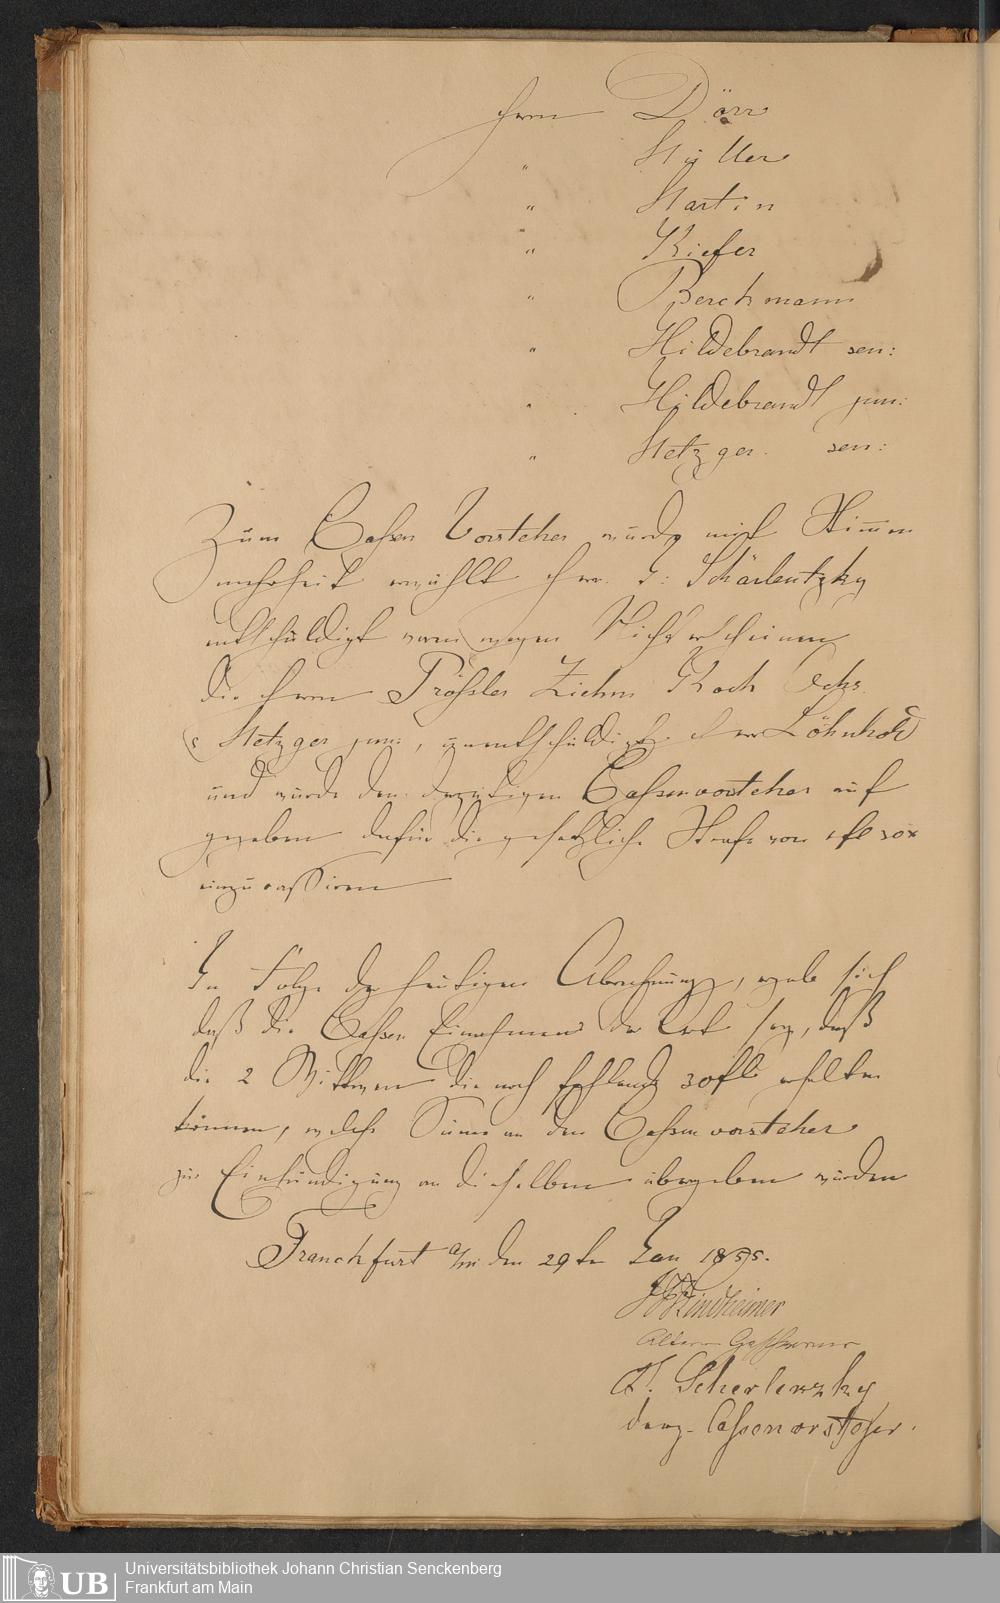 Herrn Dörr
" Müller
" Martin
" Kiefer
" Berckmann
" Hildebrandt sen:
" Hildebrandt jun:
" Metzger sen:
Zum Cassen Vorsteher wurde mit Stimmen
mehrheit erwählt Herr J: Schärlentzky
entschuldigt waren wegen Nicht erscheinen
die Herrn Prössler Ziehn Koch Ochs
& Metzger jun:, unentschuldigt Herr Löhnhold
und wurde dem derzeitigen Cassenvorsteher auf
gegeben dafür die gesetzliche Strafe von 1 fl 30 x
einzucassiren
In Folge der heutigen Abrechnung, ergab sich
daß die Cassen Einnahmen der Art sey, daß
die 2 Wittwen die noch fehlende 30 fl erhalten
können, welche Summe an den Cassenvorsteher
zur Einhändigung an dieselben übergeben wurden
Franckfurt a/m den 29ten Jan 1855.
Rindheimer
Alterer Geschworner
Scherlenzky
derz. Cassenvorsteher.
UB Universitätsbibliothek Johann Christian Senckenberg
Frankfurt am Main